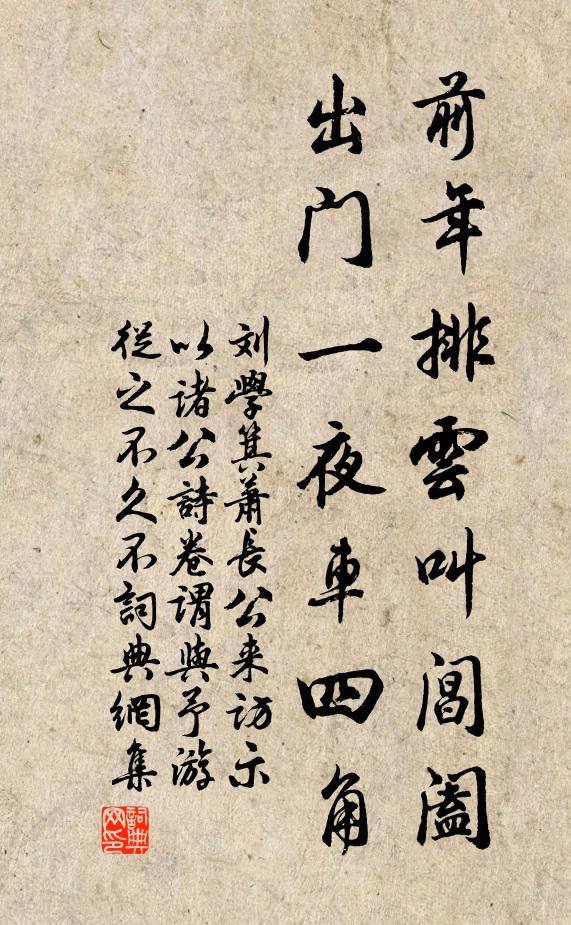 前年排雲叫閶闔
出門一夜車四角
刘學箕蕭長公来訪示
以諸公詩卷謂與予游
從之不久不詞典網集
詞典
网印